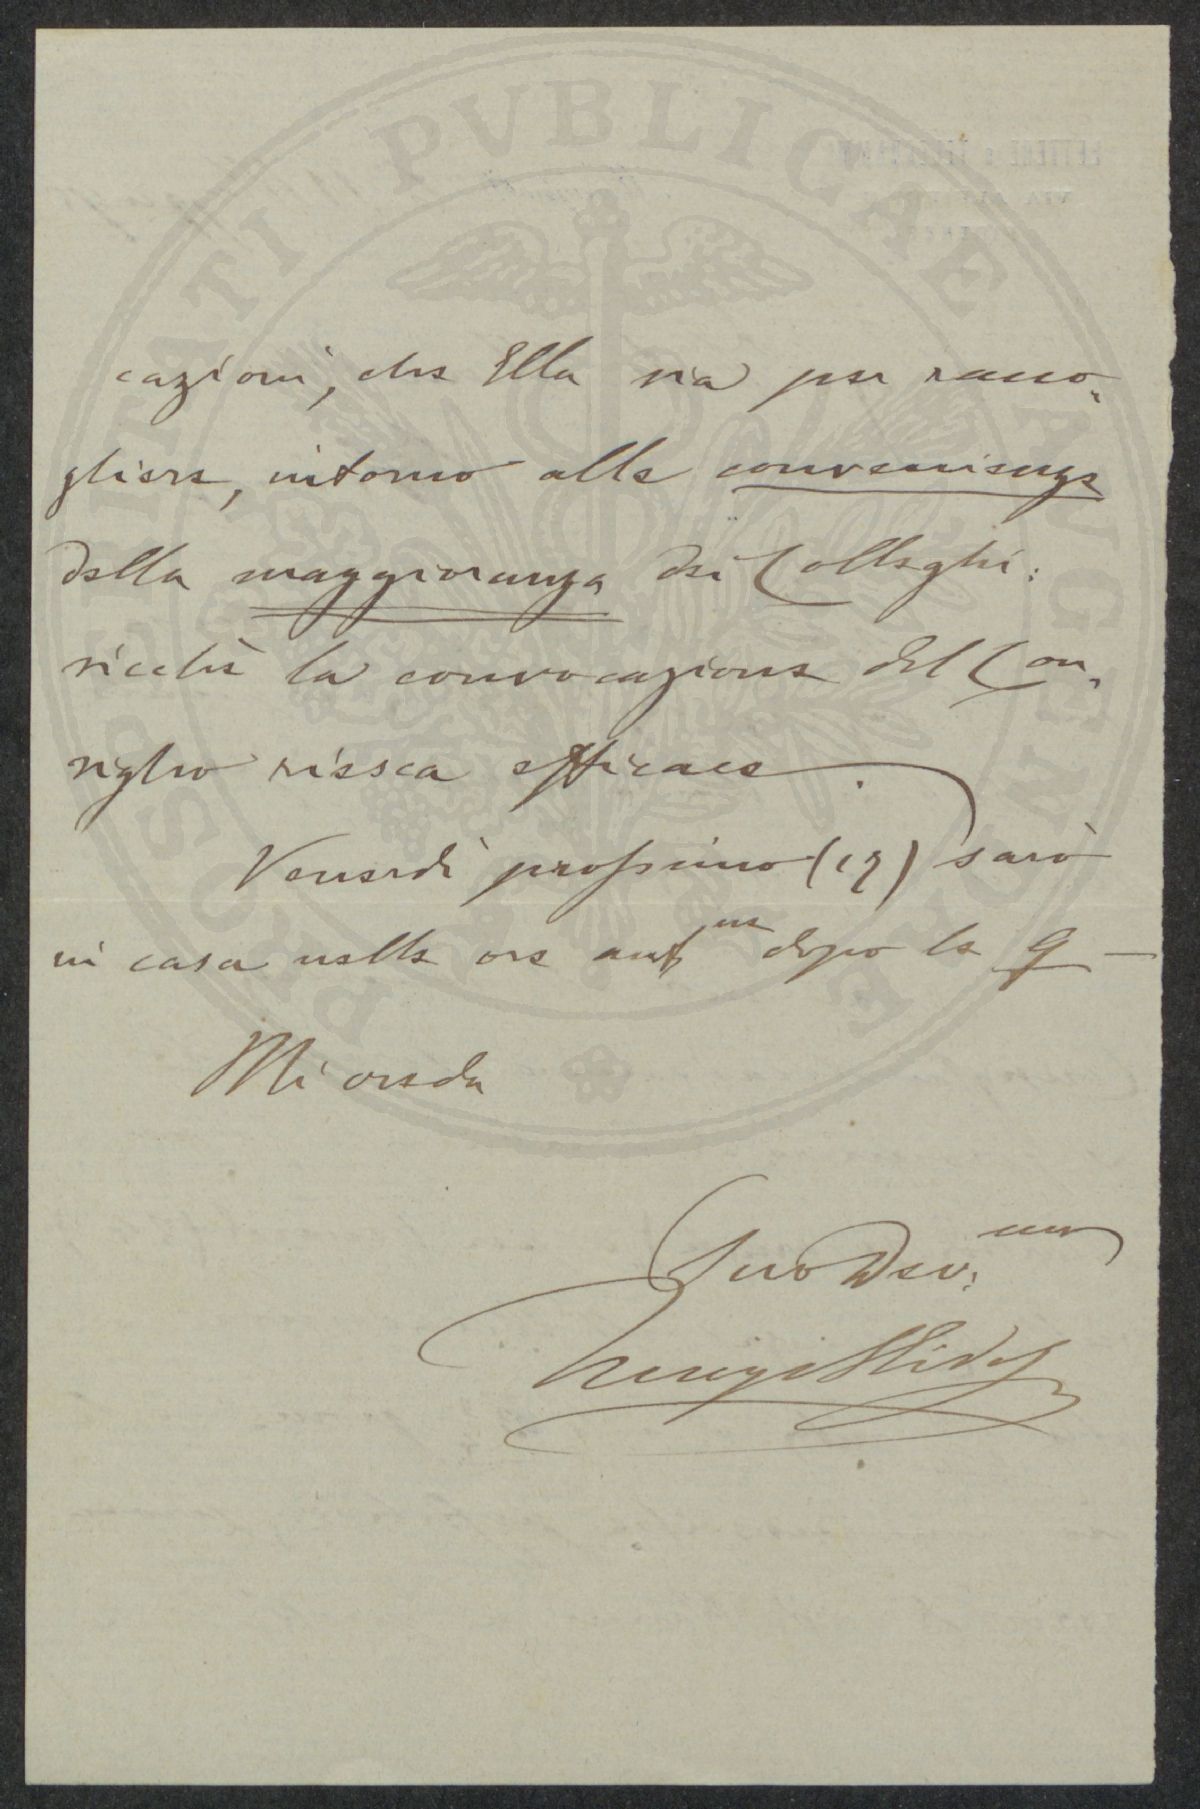 PROSPERITATI PVBLICAE AVGENDAE
cazioni, che Ella sia per racco-
gliere, intorno alle convenienze
della maggioranza dei Colleghi:
sicchè la convocazione del Con-
siglio riesca efficace.
Venerdì prossimo (19) sarò
in casa nelle ore ant.me dopo le 9 —
Mi creda
Suo Dev.mo
Luigi